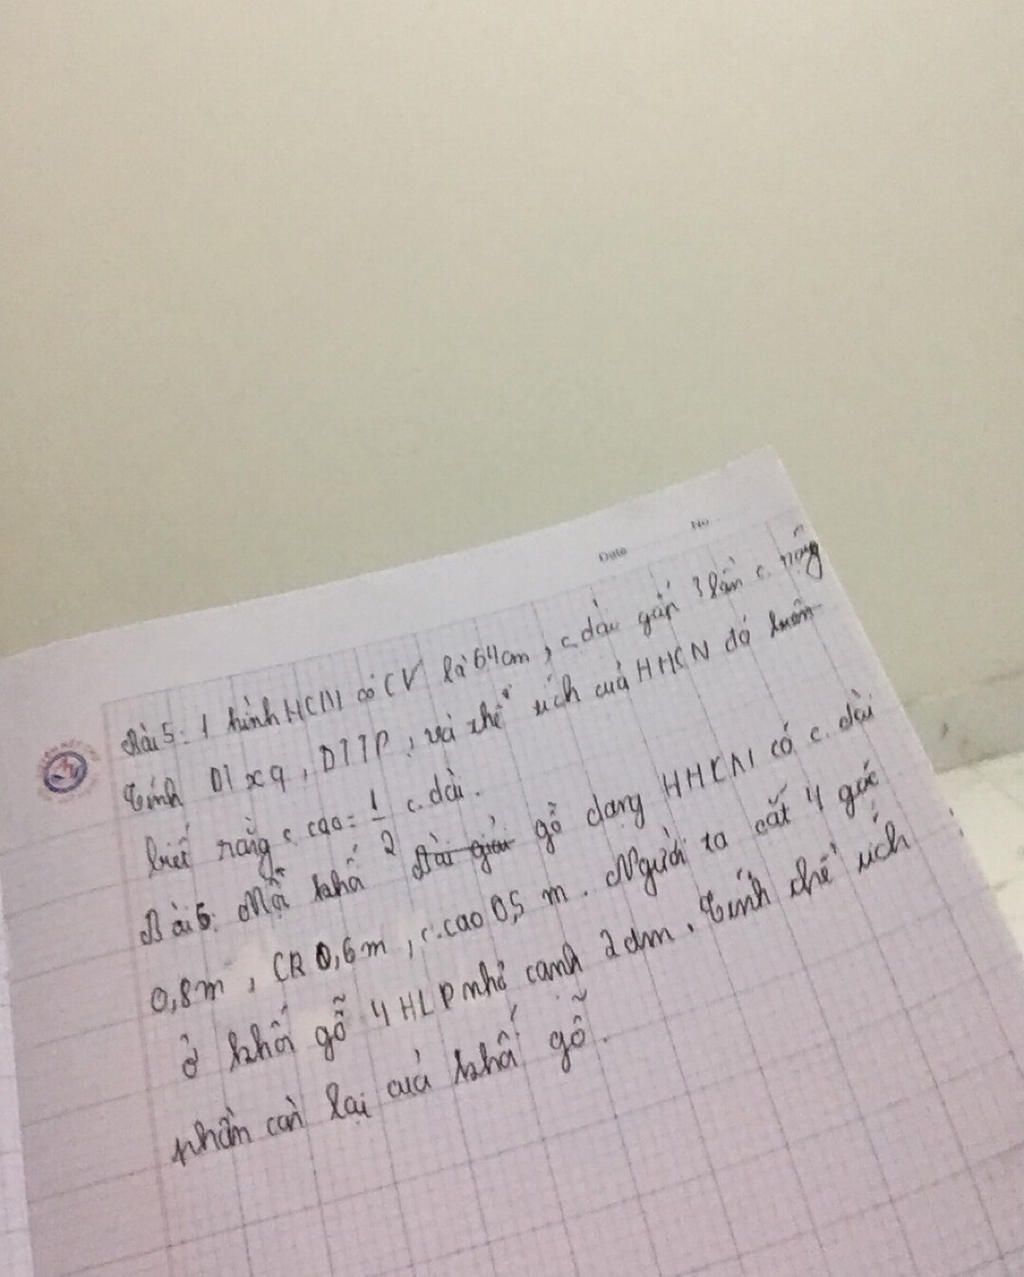 Date No
Bài 5: 1 hình HCN có CV là 64cm, c.dài gấp 3 lần c. rộng
Tính DTxq, DTTP, và thể tích của HHCN đó
biết rằng c.cao = 1/2 c.dài.
Bài 6: Một khối gỗ dạng HHCN có c. dài
0,8m, CR 0,6m, c.cao 0,5 m. Người ta cắt 4 góc
ở khối gỗ 4 HLP nhỏ cạnh 2dm. Tính thể tích
phần còn lại của khối gỗ.